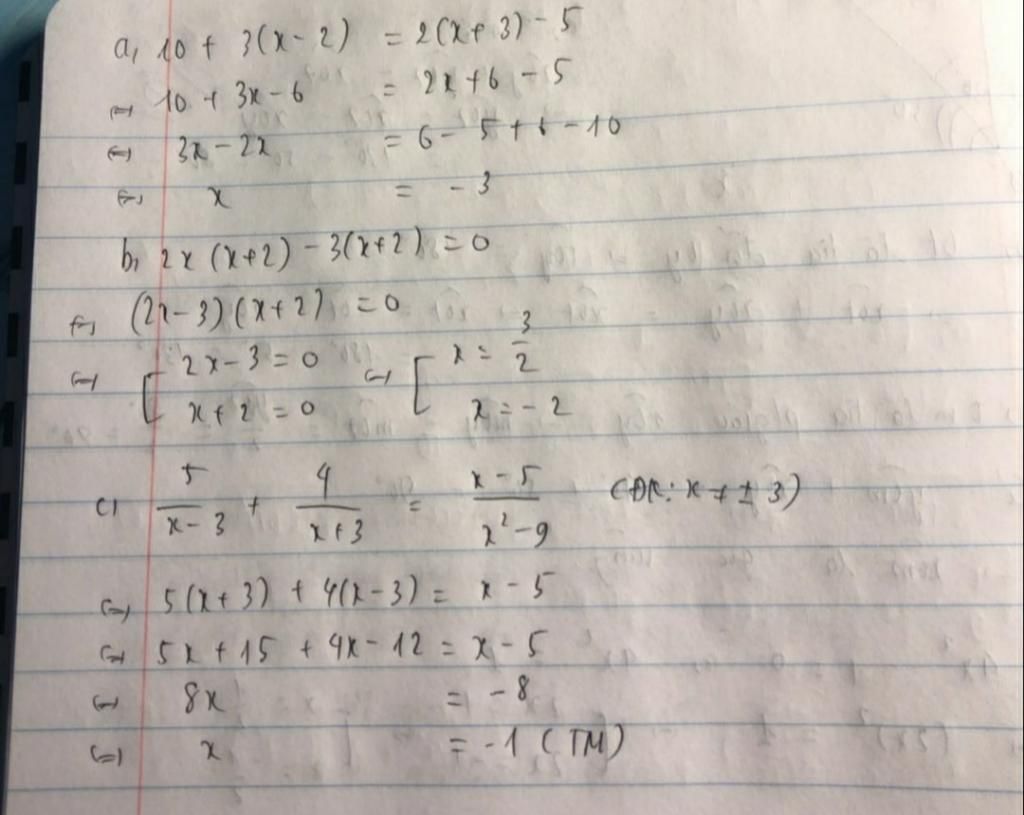 a, 10 + 3(x - 2) = 2(x + 3) - 5
<=> 10 + 3x - 6 = 2x + 6 - 5
<=> 3x - 2x = 6 - 5 + 6 - 10
<=> x = -3
b, 2x (x+2) - 3(x+2) = 0
<=> (2x - 3)(x + 2) = 0
<=> [ 2x - 3 = 0 <=> [ x = 3/2
x + 2 = 0 x = -2
c) 5/(x - 3) + 4/(x + 3) = (x - 5)/(x² - 9) (ĐK: x ≠ ± 3)
<=> 5(x + 3) + 4(x - 3) = x - 5
<=> 5x + 15 + 4x - 12 = x - 5
<=> 8x = -8
<=> x = -1 (TM)